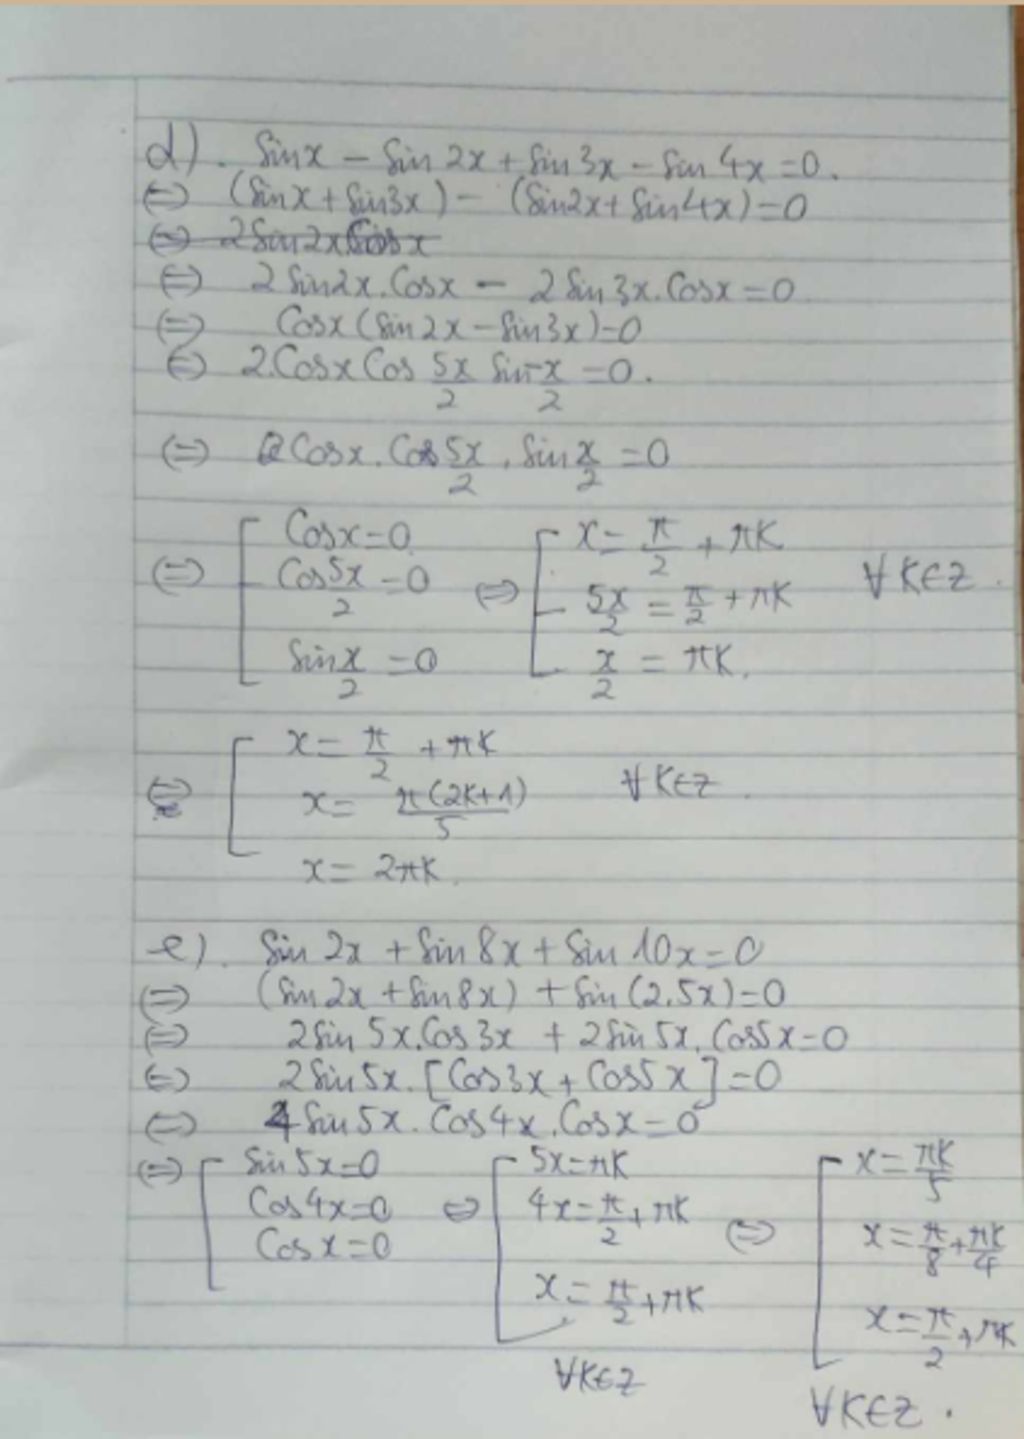 d). Sinx − Sin 2x + Sin 3x − Sin 4x = 0.
⇔ (Sinx + Sin3x) − (Sin2x + Sin4x) = 0
⇔ 2Sin2xCosx
⇔ 2 Sin2x.Cosx − 2 Sin 3x.Cosx = 0
⇔ Cosx (Sin 2x − Sin3x) = 0
⇔ 2.Cosx Cos 5x/2 Sin -x/2 = 0.
⇔ 2 Cosx . Cos 5x/2 . Sin x/2 = 0
⇔ [ Cosx = 0 ⇔ [ x = π/2 + πK
Cos 5x/2 = 0 5x/2 = π/2 + πK ∀ K∈Z.
Sin x/2 = 0 x/2 = πK.
⇔ [ x = π/2 + πK
x = π(2K+1)/5 ∀ K∈Z.
x = 2πK.
e). Sin 2x + Sin 8x + Sin 10x = 0
⇔ (Sin 2x + Sin 8x) + Sin (2.5x) = 0
⇔ 2Sin 5x.Cos 3x + 2Sin 5x.Cos5x = 0
⇔ 2Sin5x.[Cos3x + Cos5x] = 0
⇔ 4 Sin 5x. Cos 4x. Cosx = 0
⇔ [ Sin 5x = 0 [ 5x = πK [ x = πK/5
Cos 4x = 0 ⇔ 4x = π/2 + πK ⇔ x = π/8 + πK/4
Cos x = 0 x = π/2 + πK x = π/2 + πK
∀K∈Z ∀K∈Z.